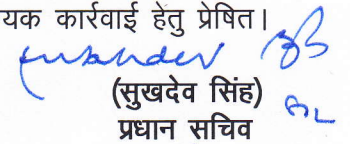 यक कार्रवाई हेतु प्रेषित।
(सुखदेव सिंह)
प्रधान सचिव